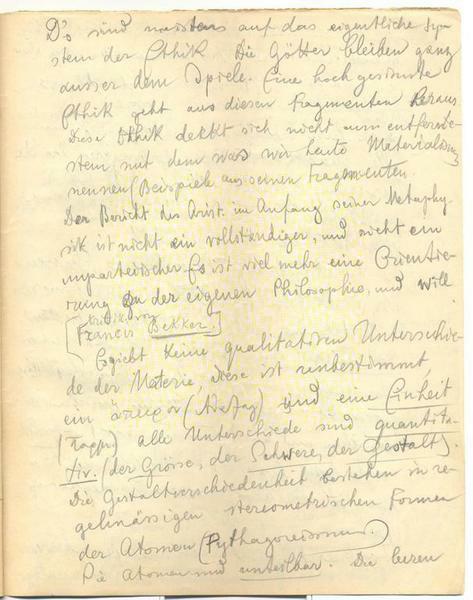 D's sind meistens auf das eigentliche Sy-
stem der Ethik. Die Götter bleiben ganz
ausser dem Spiele. Eine hoch gesinnte
Ethik geht aus diesen Fragmenten heraus
Diese Ethik dekkt sich nicht zum entfernte-
stem mit dem was wir heute Materialism
nennen (Beispiele aus seinen Fragmenten.
Der Bericht des Arist. im Anfang seiner Metaphy-
sik ist nicht ein vollständiger, und nicht ein
unparteiischer. Es ist viel mehr eine Orientie-
rung zu der eigenen Philosophie, und will
[Kritik von
Francis Bekker.]
Es gibt keine qualitativen Unterschie-
de der Materie, diese ist unbestimmt,
ein ἄπειρον und eine Einheit
alle Unterschiede sind quantita-
tiv. (der Grösse, der Schwere, der Gestalt).
Die Gestaltverschiedenheit bestehen in re-
gelmässigen stereometrischen Formen
der Atomen (Pythagoreismus.)
Die Atomen sind unteilbar. Die leeren